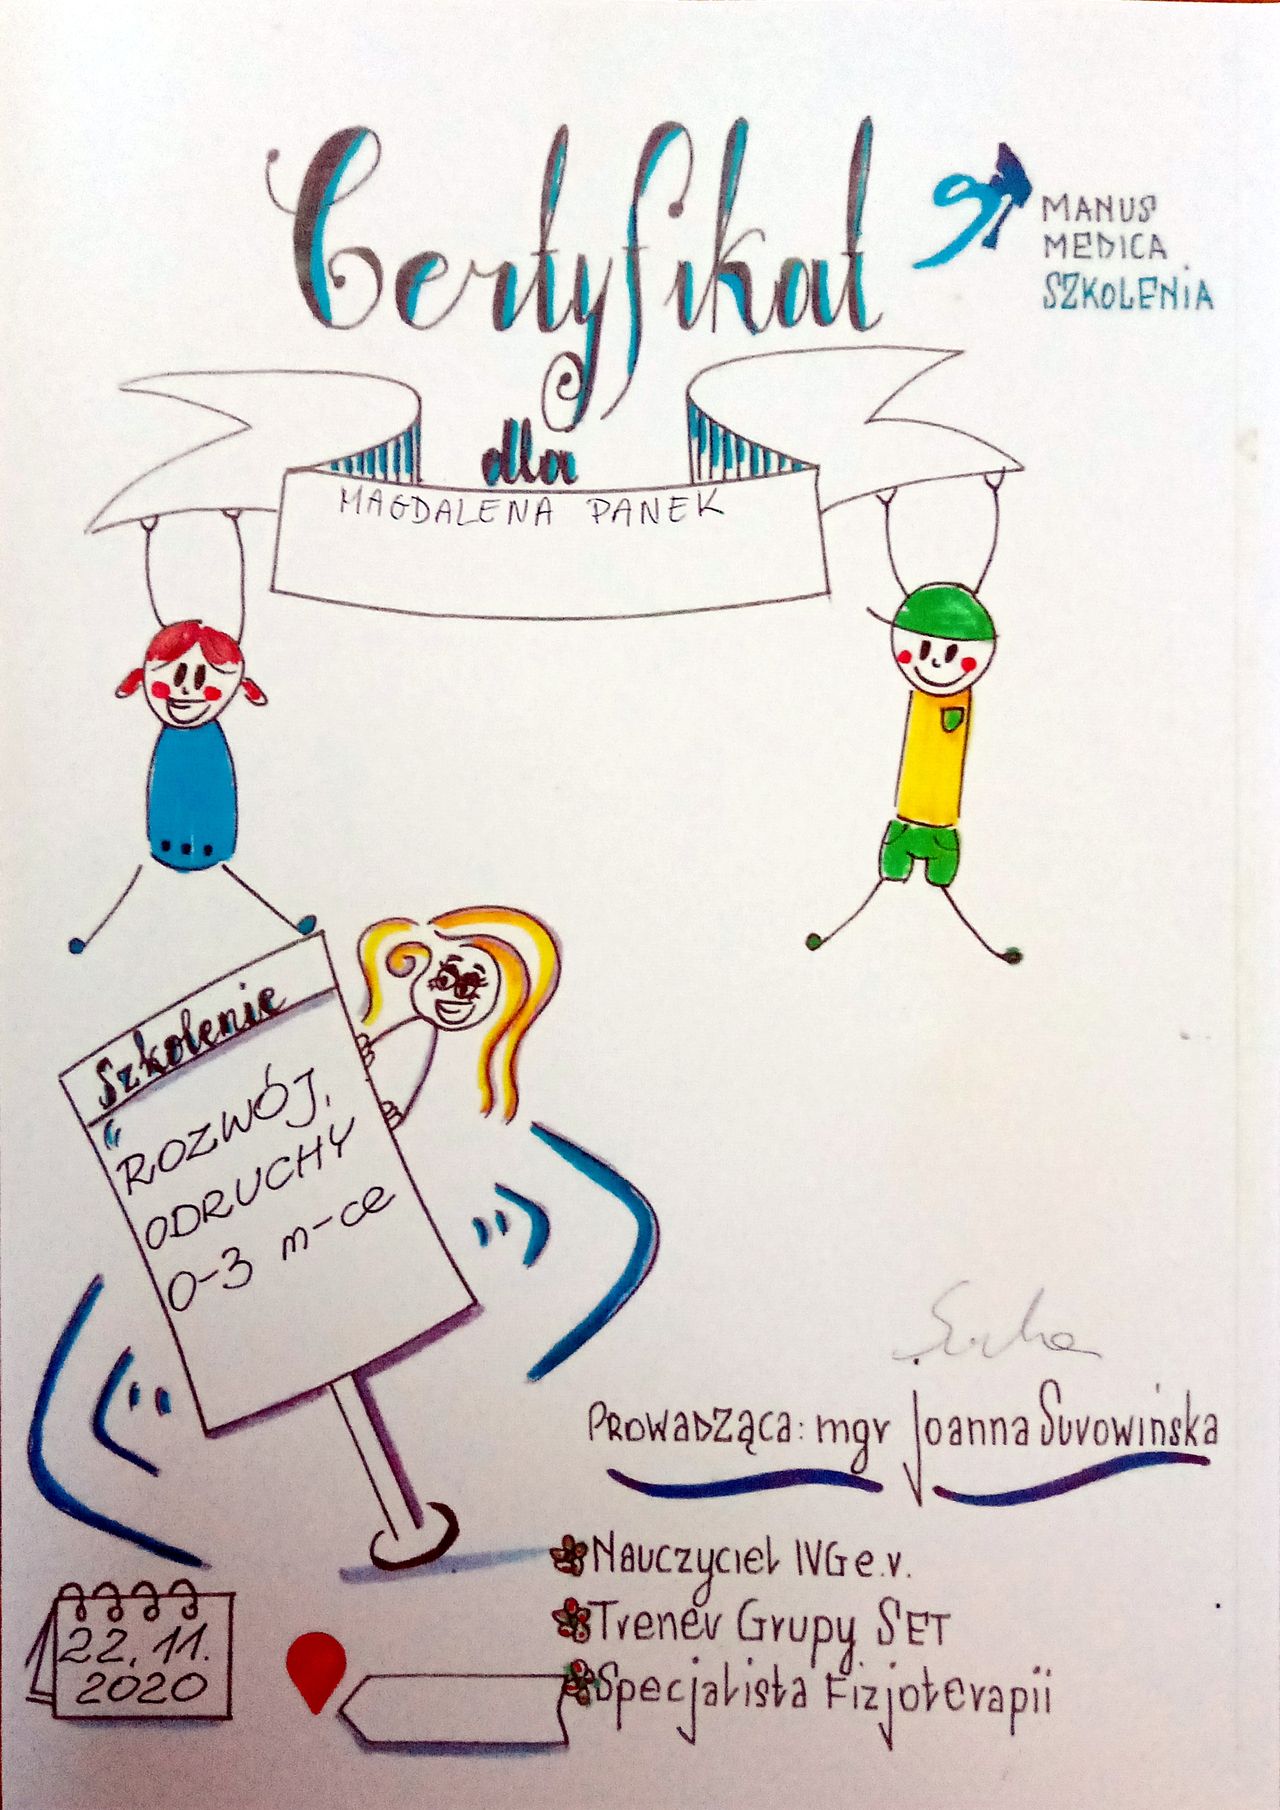 Certyfikat
MANUS
MEDICA
SZKOLENIA
dla
MAGDALENA PANEK
Szkolenie
"ROZWÓJ,
ODRUCHY
0-3 m-ce
PROWADZĄCA: mgr Joanna Surowińska
Nauczyciel IVGe.v.
Trener Grupy SET
Specjalista Fizjoterapii
22.11.
2020